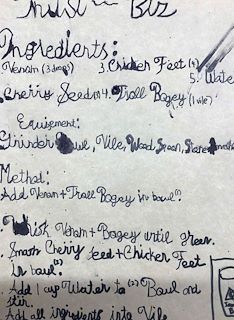 Biz
Ingredients:
Venom (3 drops) 3. Chicken Feet (4)
5. Wate
Cherry Seed 4. Troll Bogey (1 vile)
Equipment:
Grinder Bowl, Vile, Wood Spoon, Stone
Method:
Add Venom + Troll Bogey in bowl (1).
Venom + Bogey until green.
Smash Cherry seed + Chicken Feet
in bowl. (2)
Add 1 cup Water to (2) Bowl and
stir.
Add all ingredients into Vile